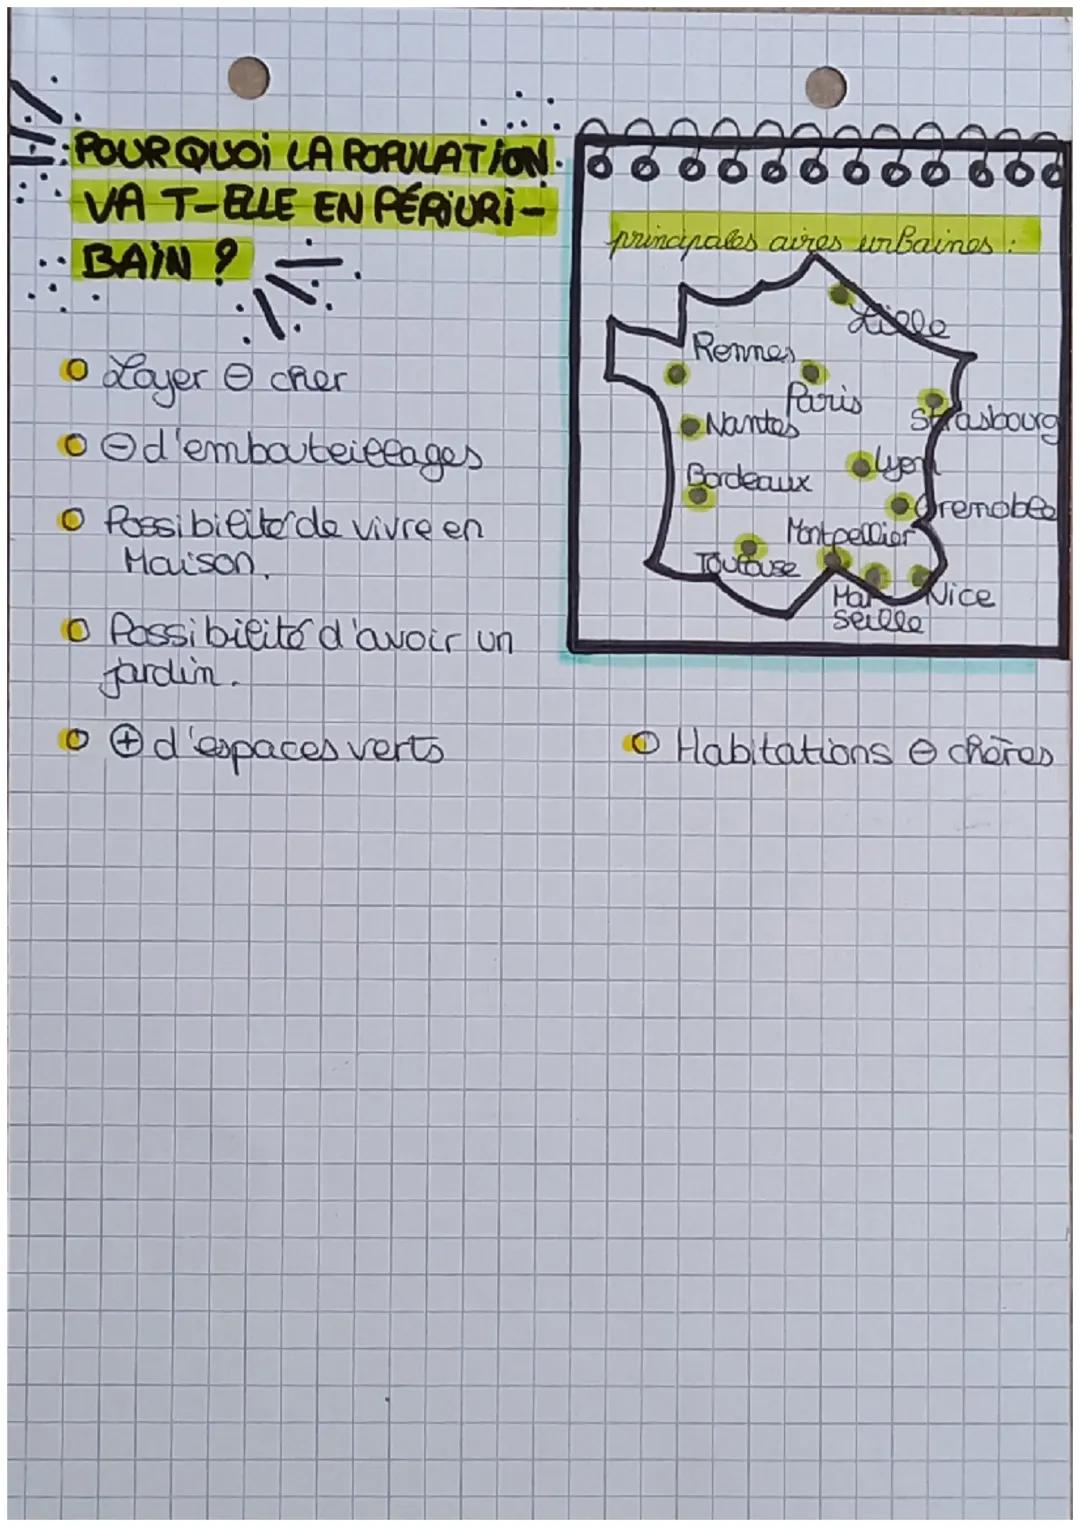 POURQUOi LA POPULATiON
VA T-ELLE EN PÉRiURi-
BAiN ?
Loyer ⊖ cher
⊖ d'embouteillages
Possibilité de vivre en
Maison.
Possibilité d'avoir un
jardin.
⊕ d'espaces verts
principales aires urBaines :
Lille
Rennes
Paris
Strasbourg
Nantes
Lyon
Bordeaux
Grenoble
Montpellier
Toulouse
Mar
seille
Nice
Habitations ⊖ chères